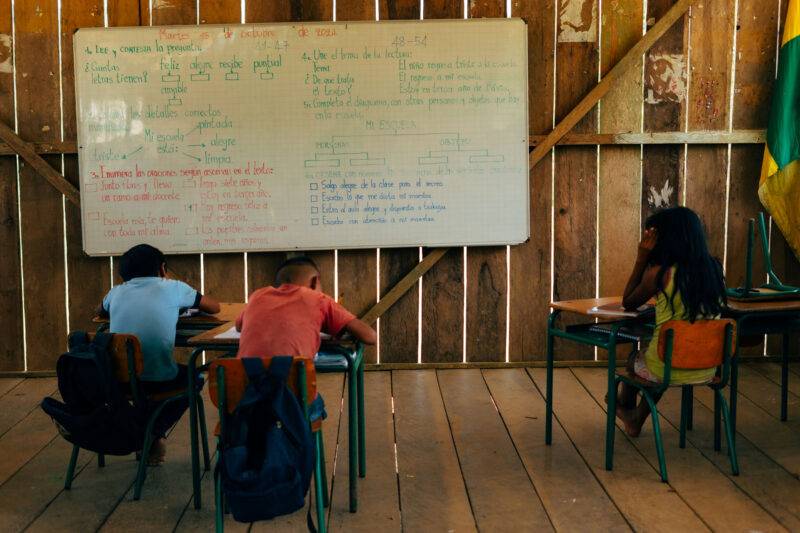 Martes 15 de Octubre de 2024
1. Lee y contesta la pregunta.
11-17
¿Cuantas letras tienen?
feliz alegre recibe puntual
amable
los detalles correctos
Mi escuela está:
pintada
alegre
limpia
triste
3. Enumera las oraciones según ocurran en el texto:
Junto y llevo un ramo a mi docente
Tengo siete años y estoy en tercer año.
Hoy regreso feliz a mi escuela.
Escuela mía, te quiero con toda mi alma.
48-54
4. Une el tema de la lectura:
Tema
¿De qué trata el texto?
El niño regresa triste a la escuela.
El regreso a mi escuela.
Estoy en tercer año de
5. Completa el diagrama, con otras personas y objetos que hay en la escuela.
MI ESCUELA
PERSONAS
OBJETOS
Salgo alegre de la clase para el recreo
Escribo lo que dicta mi maestra
Entro al aula alegre y dispuesto a trabajar
Escucho con atención a mi maestra